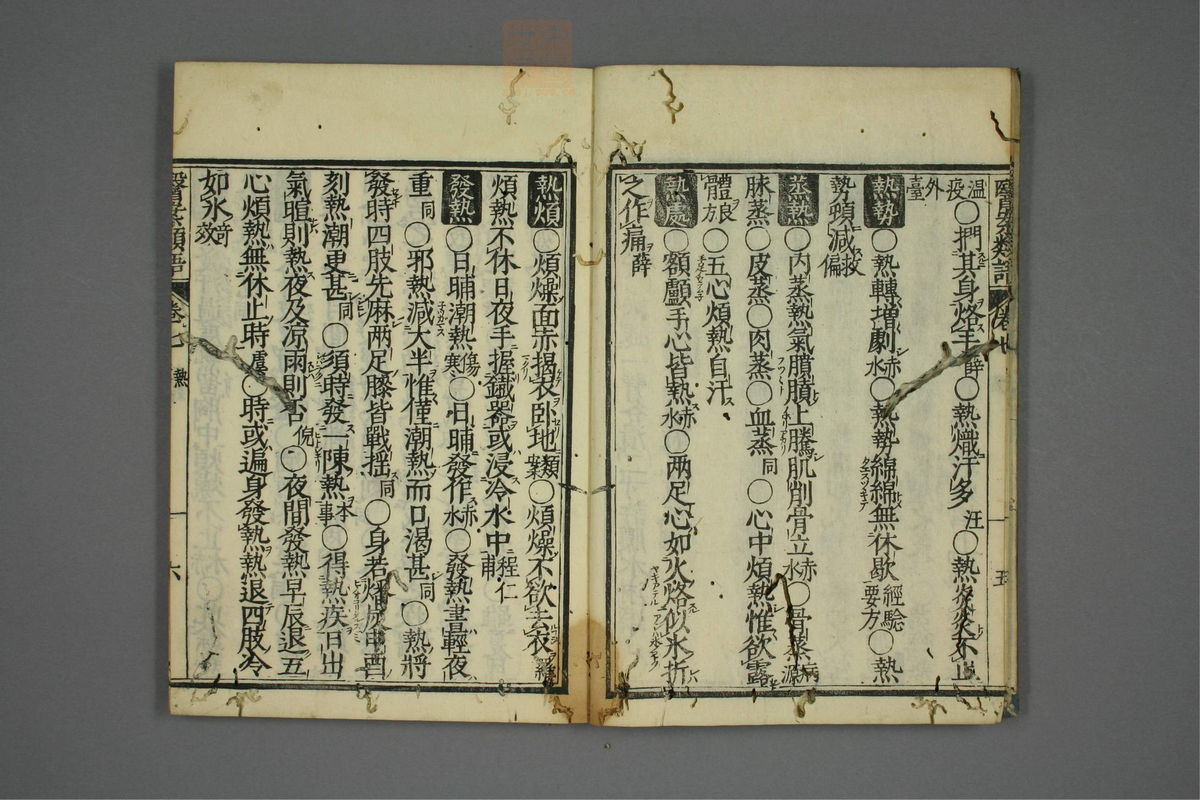 温疫○捫其身烙手薛○熱熾汗多汪○熱炎炎不止
外臺
熱勢○熱轉增劇赤水○熱勢綿綿無休歇經驗要方○熱
勢頓減赦偏
蒸熱○内蒸熱氣臏臏上騰肌削骨立赤水○骨蒸病源
脉蒸○皮蒸○肉蒸○血蒸同○心中煩熱惟欲露
體良方○五心煩熱自汗
熱處○額顱手心皆熱赤水○两足心如火烙似氷折
之作痛薛
熱煩○煩燥面赤揭衣卧地類案○煩燥不欲去衣羅
煩熱不休日夜手握鐵器或浸冷水中程仁甫
發熱○日晡潮熱傷寒○日晡發作赤水○發熱晝輕夜
重同○邪熱減大半惟僅潮熱而口渴甚同○熱將
發時四肢先麻两足膝皆戰摇同○身若燔炭申酉
刻熱潮更甚同○須時發一陳熱本事○得熱疾日出
氣暄則熱夜及凉雨則否倪○夜間發熱早辰退五
心煩熱無休止時虞○時或遍身發熱熱退四肢冷
如氷奇效
醫案類語
卷七
熱
六
五